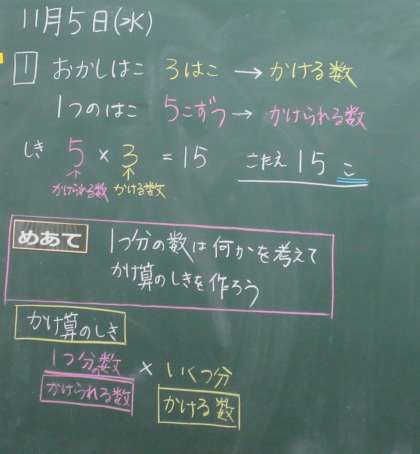 11月5日(水)
1 おかしはこ 3はこ → かける数
1つのはこ 5こずつ → かけられる数
しき 5 × 3 = 15 こたえ 15こ
↑かけられる数 ↑かける数
めあて 1つ分の数は何かを考えて
かけ算のしきを作ろう
かけ算のしき
1つ分の数 × いくつ分
かけられる数 かける数